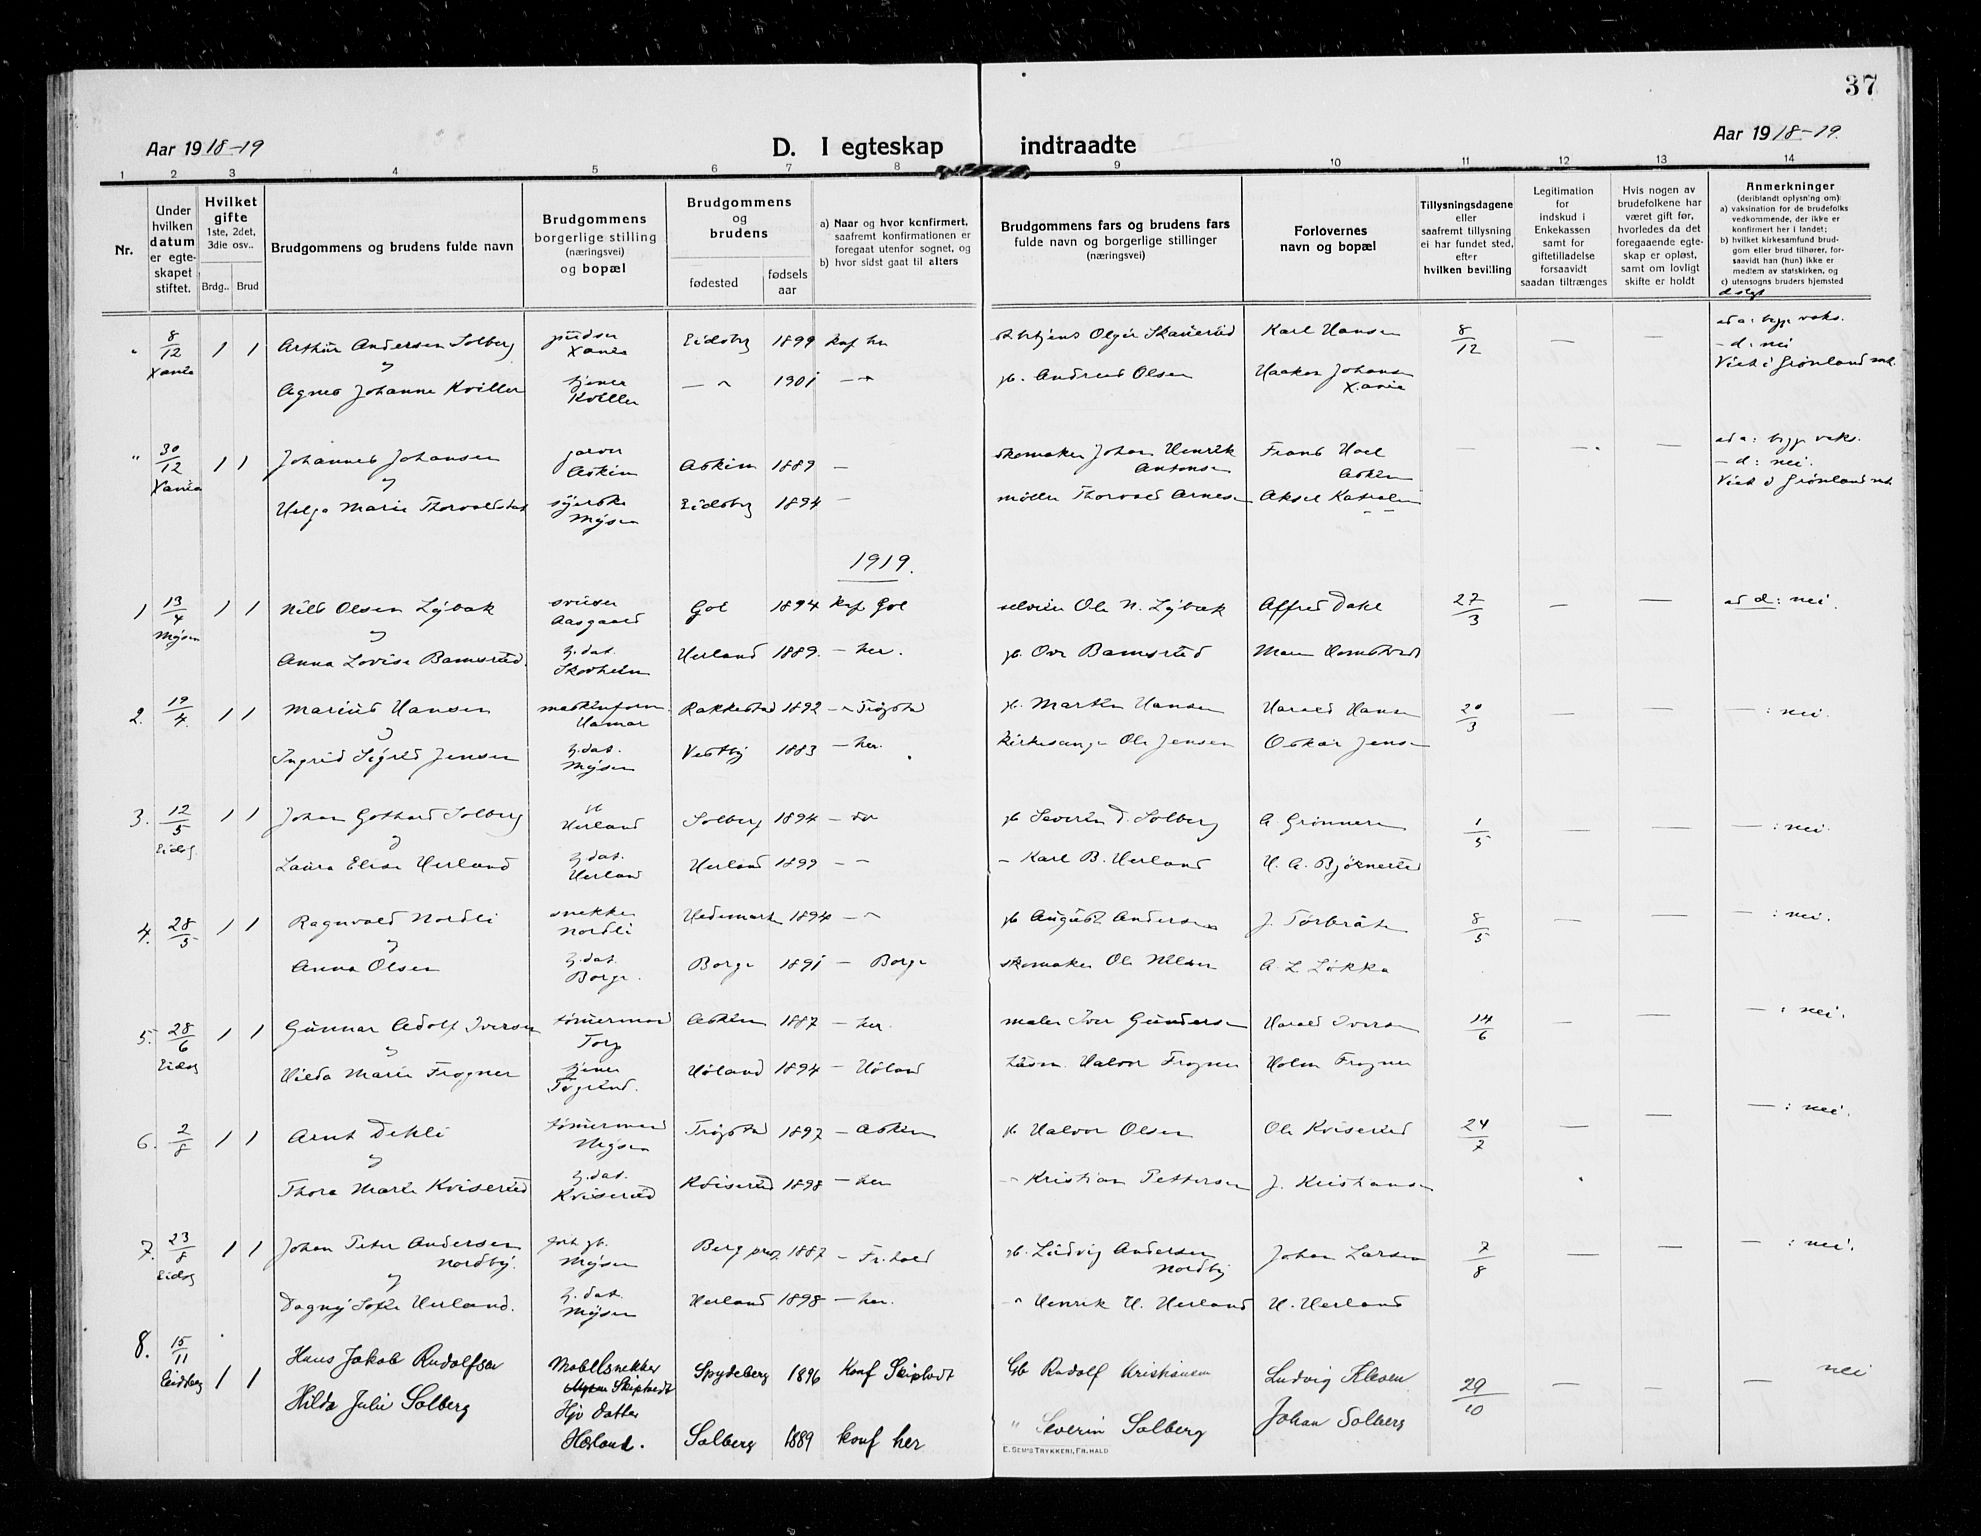 37
Aar 1918-19
D. I egteskap indtraadte
Aar 1918-19.
1 2 3 4 5 6 7 8 9 10 11 12 13 14
Nr.
Under hvilken datum er egteskapet stiftet.
Hvilket gifte 1ste, 2det, 3die osv..
Brdg.. Brud
Brudgommens og brudens fulde navn
Brudgommens borgerlige stilling (næringsvei) og bopæl
Brudgommens og brudens
fødested
fødsels aar
a) Naar og hvor konfirmert, saafremt konfirmationen er foregaat utenfor sognet, og
b) hvor sidst gaat til alters
Brudgommens fars og brudens fars fulde navn og borgerlige stillinger (næringsvei)
Forlovernes navn og bopæl
Tillysningsdagene eller saafremt tillysning ei har fundet sted, efter hvilken bevilling
Legitimation for indskud i Enkekassen samt for giftetilladelse forsaavidt saadan tiltrænges
Hvis nogen av brudefolkene har været gift før, hvorledes da det foregaaende egteskap er opløst, samt om lovligt skifte er holdt
Anmerkninger (deriblandt oplysning om):
a) vaksination for de brudefolks vedkommende, der ikke er konfirmert her i landet;
b) hvilket kirkesamfund brudgom eller brud tilhører, forsaavidt han (hun) ikke er medlem av statskirken, og
c) utensogns bruders hjemsted
d slegt
" 8/12 Xania 1 1 Arthur Andersen Solberg pudser Xania Eidsbg 1899 kof her Olger Skaujerud Karl Hansen 8/12 — — ad a: begge vaks.
— d: nei
og
Agnes Johanne Kviller tjener Kviller — " 1901 — " gb. Andreas Olsen Haakon Johansen Xania Viet i Grønland mk.
" 30/12 Xania 1 1 Johannes Johansen garver Askim Askim 1889 — skomaker Johan Henrik Antonsen Frans Hoel Askim — — — ad a: begge vaks.
— d: nei.
og
Helga Marie Thorvaldsen syerske Mysen Eidsbg 1894 — møller Thorvald Arnesen Aksel Viet i Grønland mk
1919.
1 13/4 Mysen 1 1 Nils Olsen Lybæk sveiser Aasgaard Gol 1894 kof Gol selveier Ole N. Lybæk Alfred Dahl 27/3 — — ad d: nei.
og
Anna Lovise Bamsrud. h.dat. Skovheim Herland 1889. — her. gb. Ove Bamsrud
2. 19/4. 1 1 Marius Hansen maskinform. Hamar Rakkestad 1892 — " Trøgstad gb. Martin Hansen Harald Hansen 20/3 — — — : nei.
og
Ingrid Sigrid Jensen h.dat. Mysen Vestby 1883 — her. kirkesanger Ole Jensen Oskar Jensen
3. 12/5 Eidsb. 1 1 Johan Gothard Solberg gb Herland Solberg 1894 — gb Severin D. Solberg A Grønnern 1/5 — — — : nei.
og
Laura Elise Herland h.dat. Herland Herland 1899 — — — Karl B. Herland H. A. Bjørnerud
4. 28/5 1 1 Ragnvald Nordli snekker Nordli Hedemarken 1894 — " gb August Andersen J. Torbråten 8/5 — — — : nei.
og
Anna Olsen h.dat. Borge. Borge 1891 — Borge skomaker Ole Nilsen A. L Løkka
5. 28/6 Eidsb 1 1 Gunnar Adolf Iversen tømermand Torp Askim 1887 — her. maler Iver Gundersen Harald Iversen 14/6 — — — : nei.
og
Hilda Marie Frogner tjener Høland 1894 — Høland Halvor Frogner Holm Frogner
6. 2/8 1 1 Arnt Dehli tømermand Mysen Trøgstad 1897 — Askim gb. Halvor Olsen Ole Kviserud 24/7 — — — : nei.
og
Thora Marie Kviserud h.dat. Kviserud Kviserud 1898 — her — " Kristian Pettersen J. Kristiansen
7. 23/8 Eidsb 1 1 Johan Peter Andersen Nordby. forh. gb. Mysen Berg pregj 1887 — Fr.hald gb. Ludvig Andersen Nordby Johan Larsen 7/8 — — — : nei.
og
Dagny Sofie Herland. h.dat. Mysen Herland 1898 — her. — " Henrik H. Herland H. Herland
8. 15/11 Eidsberg 1 1 Hans Jakob Rudolfsen Møbelsnekker Skiptvedt Spydeberg 1896 Konf Skiptvedt Gb Rudolf Kristiansen Ludvig Kleven 29/10 — — — nei
Hilda Julie Solberg Hjv datter Hærland. Solberg 1889 konf her " Severin Solberg Johan Solberg
E. SEM'S TRYKKERI, FR.HALD